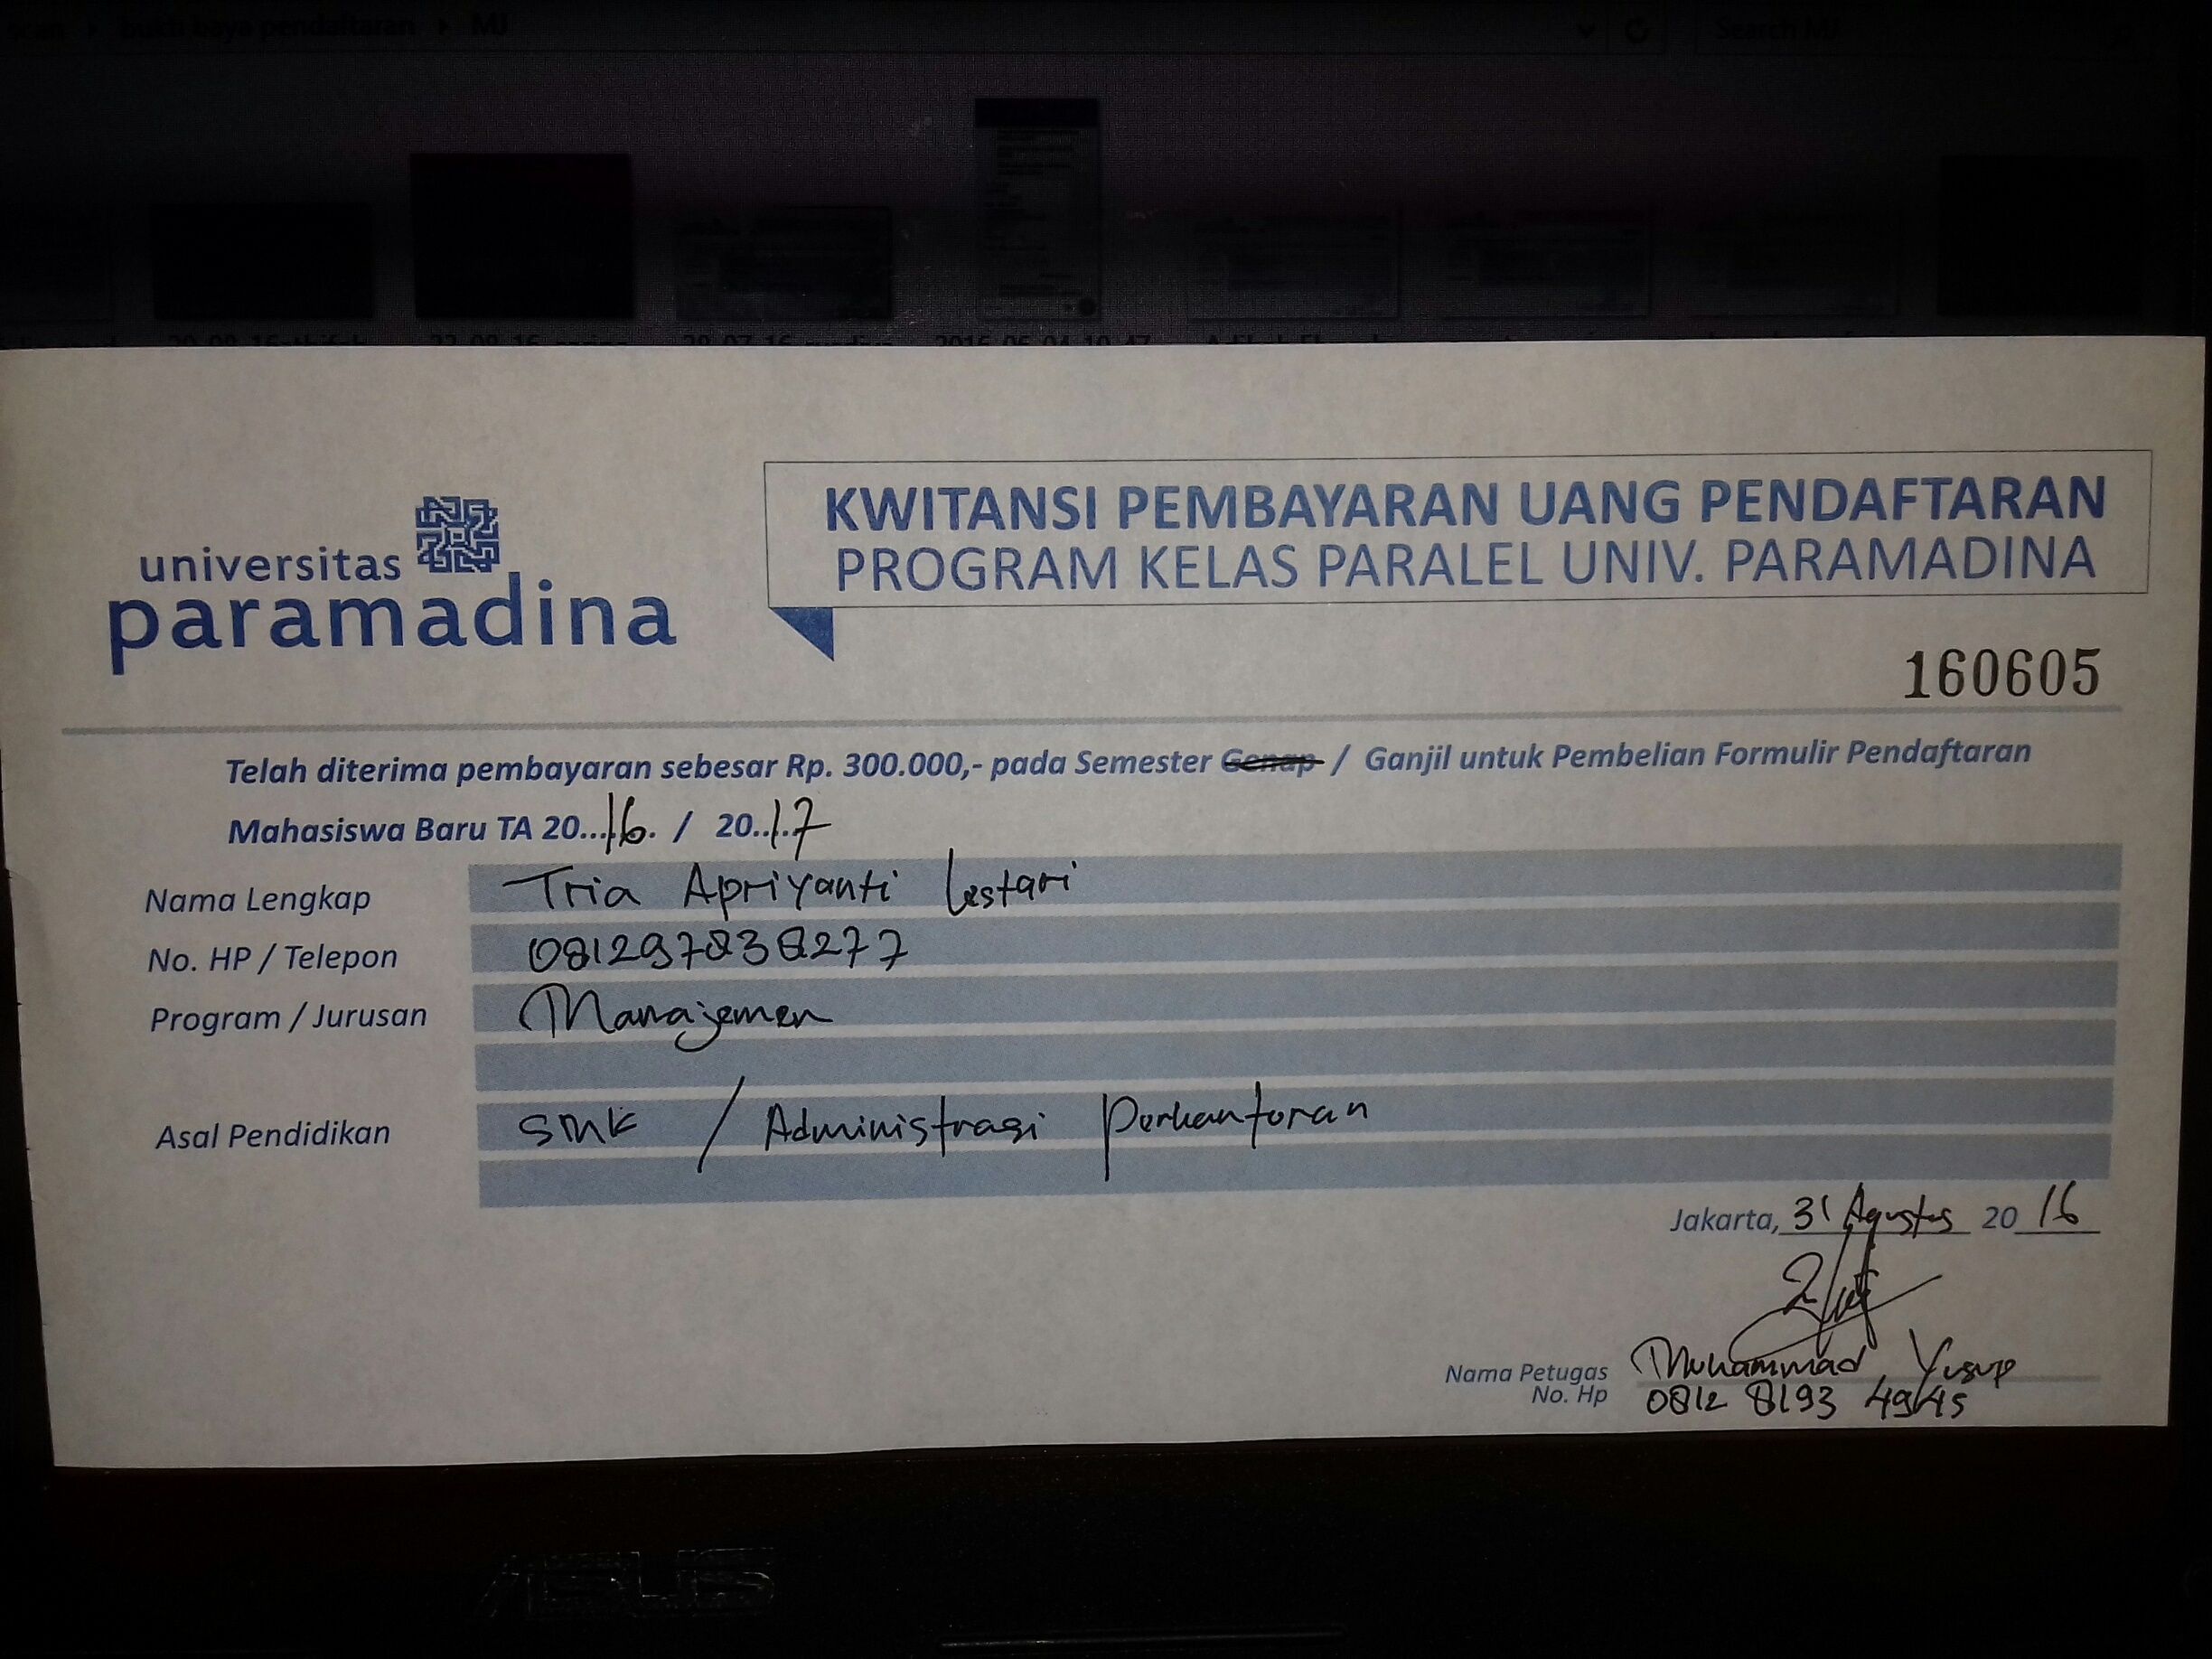 bukti baya pendaftaran MJ
Search MJ
universitas
paramadina
KWITANSI PEMBAYARAN UANG PENDAFTARAN
PROGRAM KELAS PARALEL UNIV. PARAMADINA
160605
Telah diterima pembayaran sebesar Rp. 300.000,- pada Semester Genap / Ganjil untuk Pembelian Formulir Pendaftaran
Mahasiswa Baru TA 20...16. / 20..17
Nama Lengkap Tria Apriyanti Lestari
No. HP / Telepon 081297838277
Program / Jurusan Manajemen
Asal Pendidikan SMK / Administrasi Perkantoran
Jakarta, 31 Agustus 20 16
Nama Petugas Muhammad Yusup
No. Hp 0812 8193 4945
ASUS